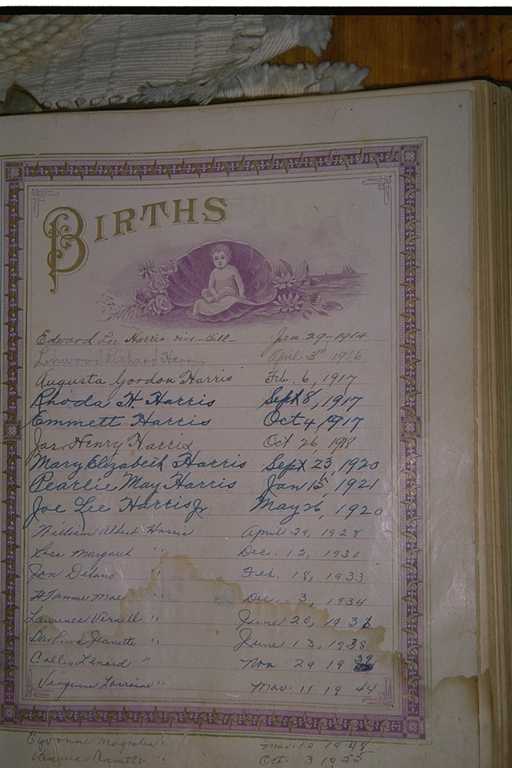 BIRTHS
Edward Lee Harris Jan 29-1914
Linwood Richard April 3rd 1916
Augusta Gordon Harris Feb. 6, 1917
Rhoda H. Harris Sept 8, 1917
Emmett Harris Oct 4 1917
Jas. Henry Harris Oct 26, 1918
Mary Elizabeth Harris Sept 23, 1920
Pearlie May Harris Jan 15, 1921
Joe Lee Harris Jr May 26, 1920
William Albert Harris April 29, 1928
Rose Margaret " Dec. 12, 1930
Jon Delano " Feb. 18, 1933
Fannie Mae " Dec. 3, 1934
Lawrence Vernell " June 20, 1936
Jeanette " June 13, 1938
Lenard " Nov. 29 19
Virginia Lorraine " Mar. 11 1944
Magnolia 1948
Oct 3